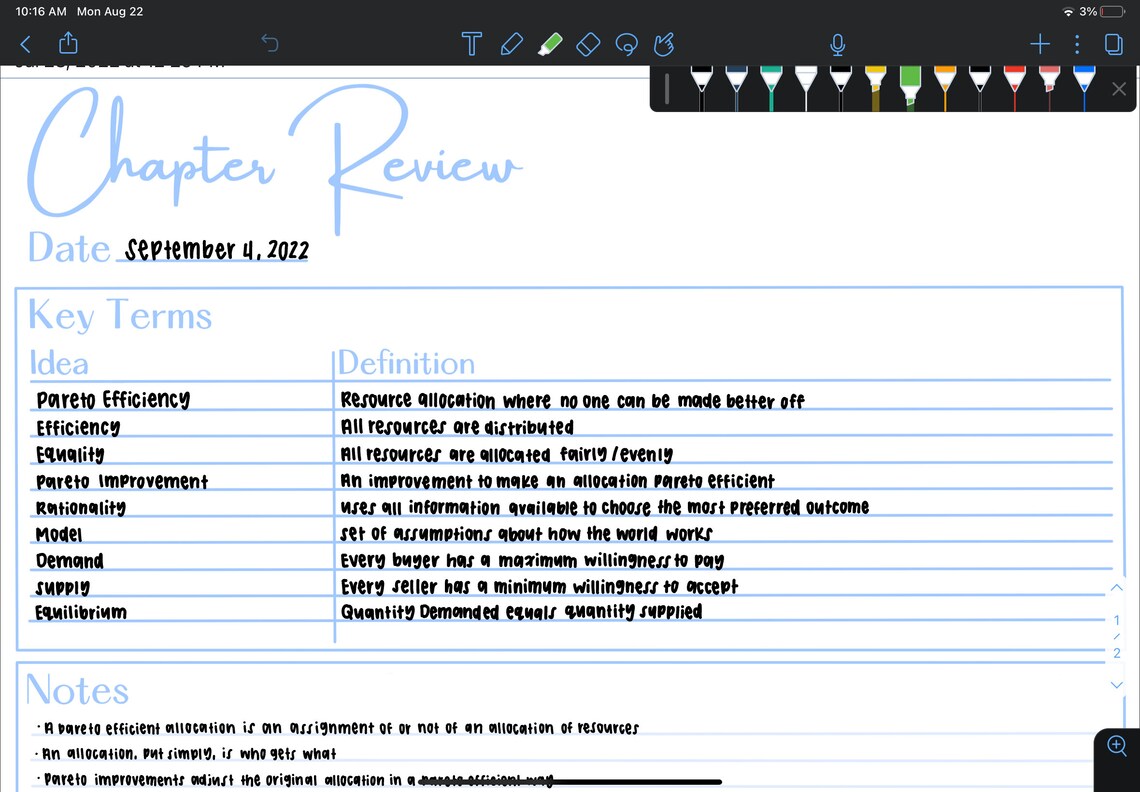 10:16 AM Mon Aug 22
3%
Chapter Review
Date September 4, 2022
Key Terms
Idea Definition
Pareto Efficiency Resource allocation where no one can be made better off
Efficiency All resources are distributed
Equality All resources are allocated fairly/evenly
Pareto Improvement An improvement to make an allocation pareto efficient
Rationality uses all information available to choose the most preferred outcome
Model set of assumptions about how the world works
Demand Every buyer has a maximum willingness to pay
supply Every seller has a minimum willingness to accept
Equilibrium Quantity Demanded equals quantity supplied
1
/
2
Notes
· A pareto efficient allocation is an assignment of or not of an allocation of resources
· An allocation, put simply, is who gets what
· Pareto improvements adjust the original allocation in a pareto efficient way